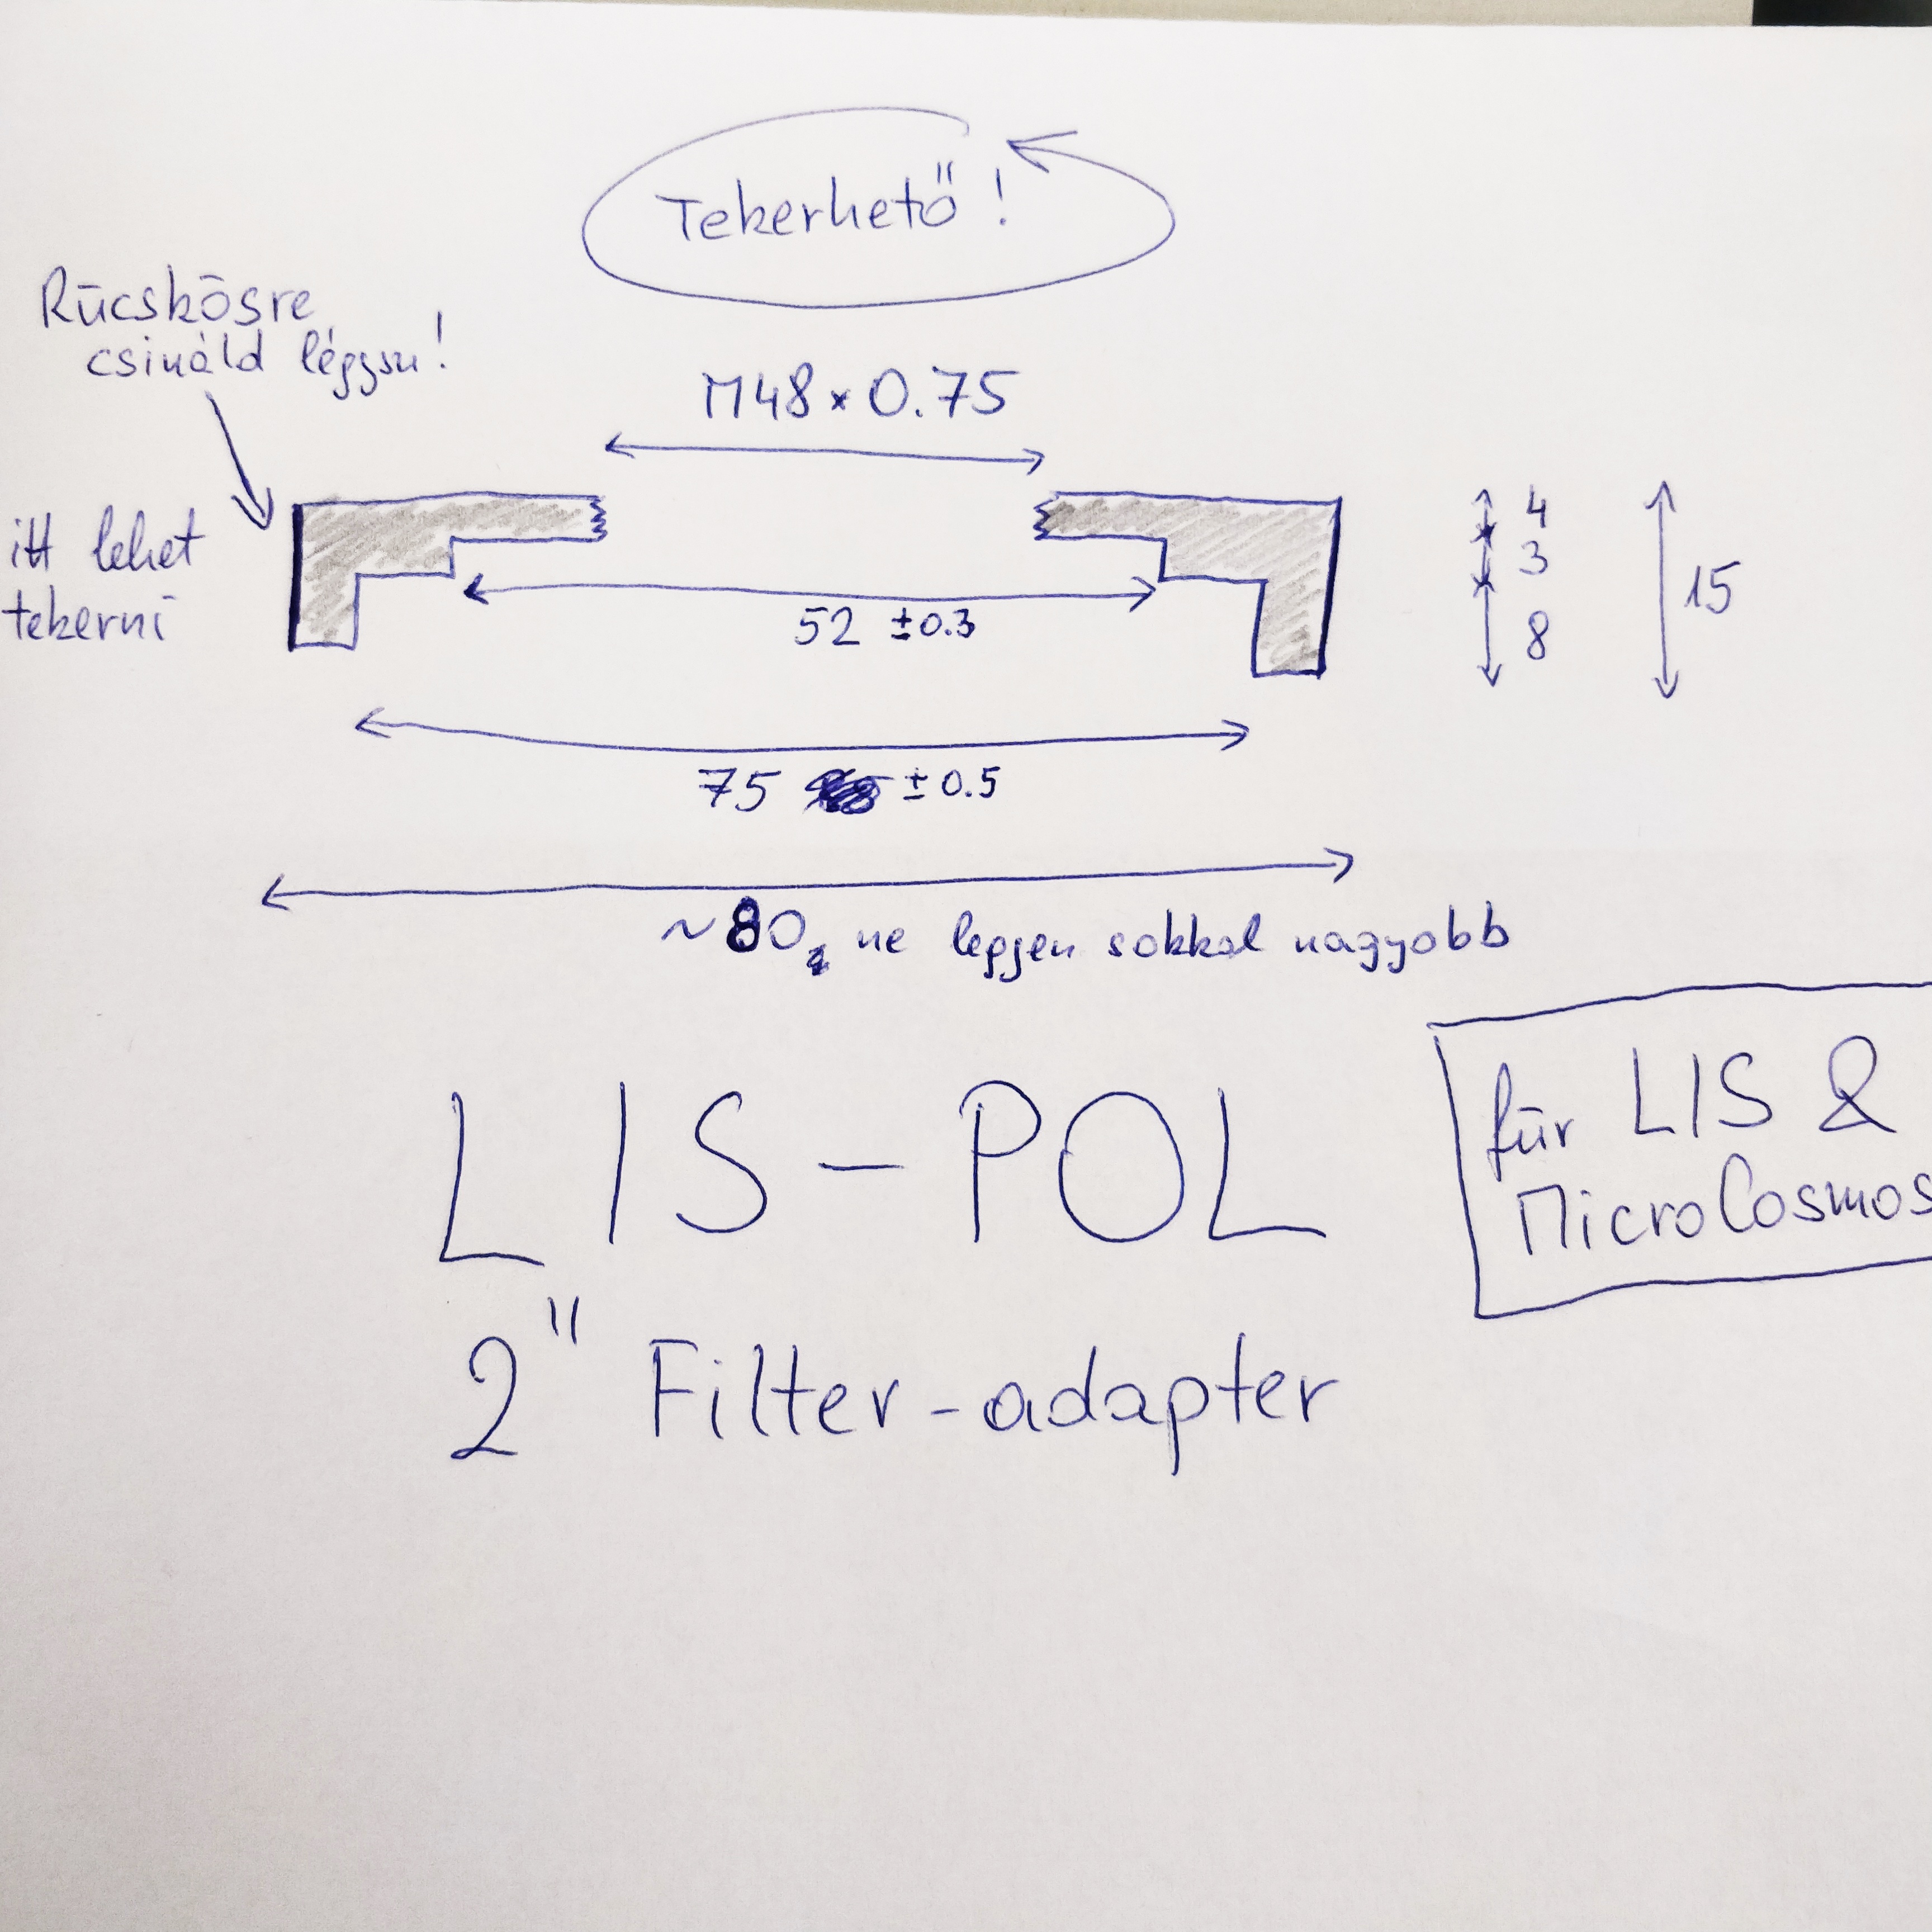 Tekerhető!
Rücskösre
csináld légyszi!
M48 × 0.75
itt lehet
tekerni
4
3
8
15
52 ±0.3
75 ±0.5
~80, ne legyen sokkal nagyobb
LIS-POL
für LIS &
MicroCosmos
2" Filter-adapter